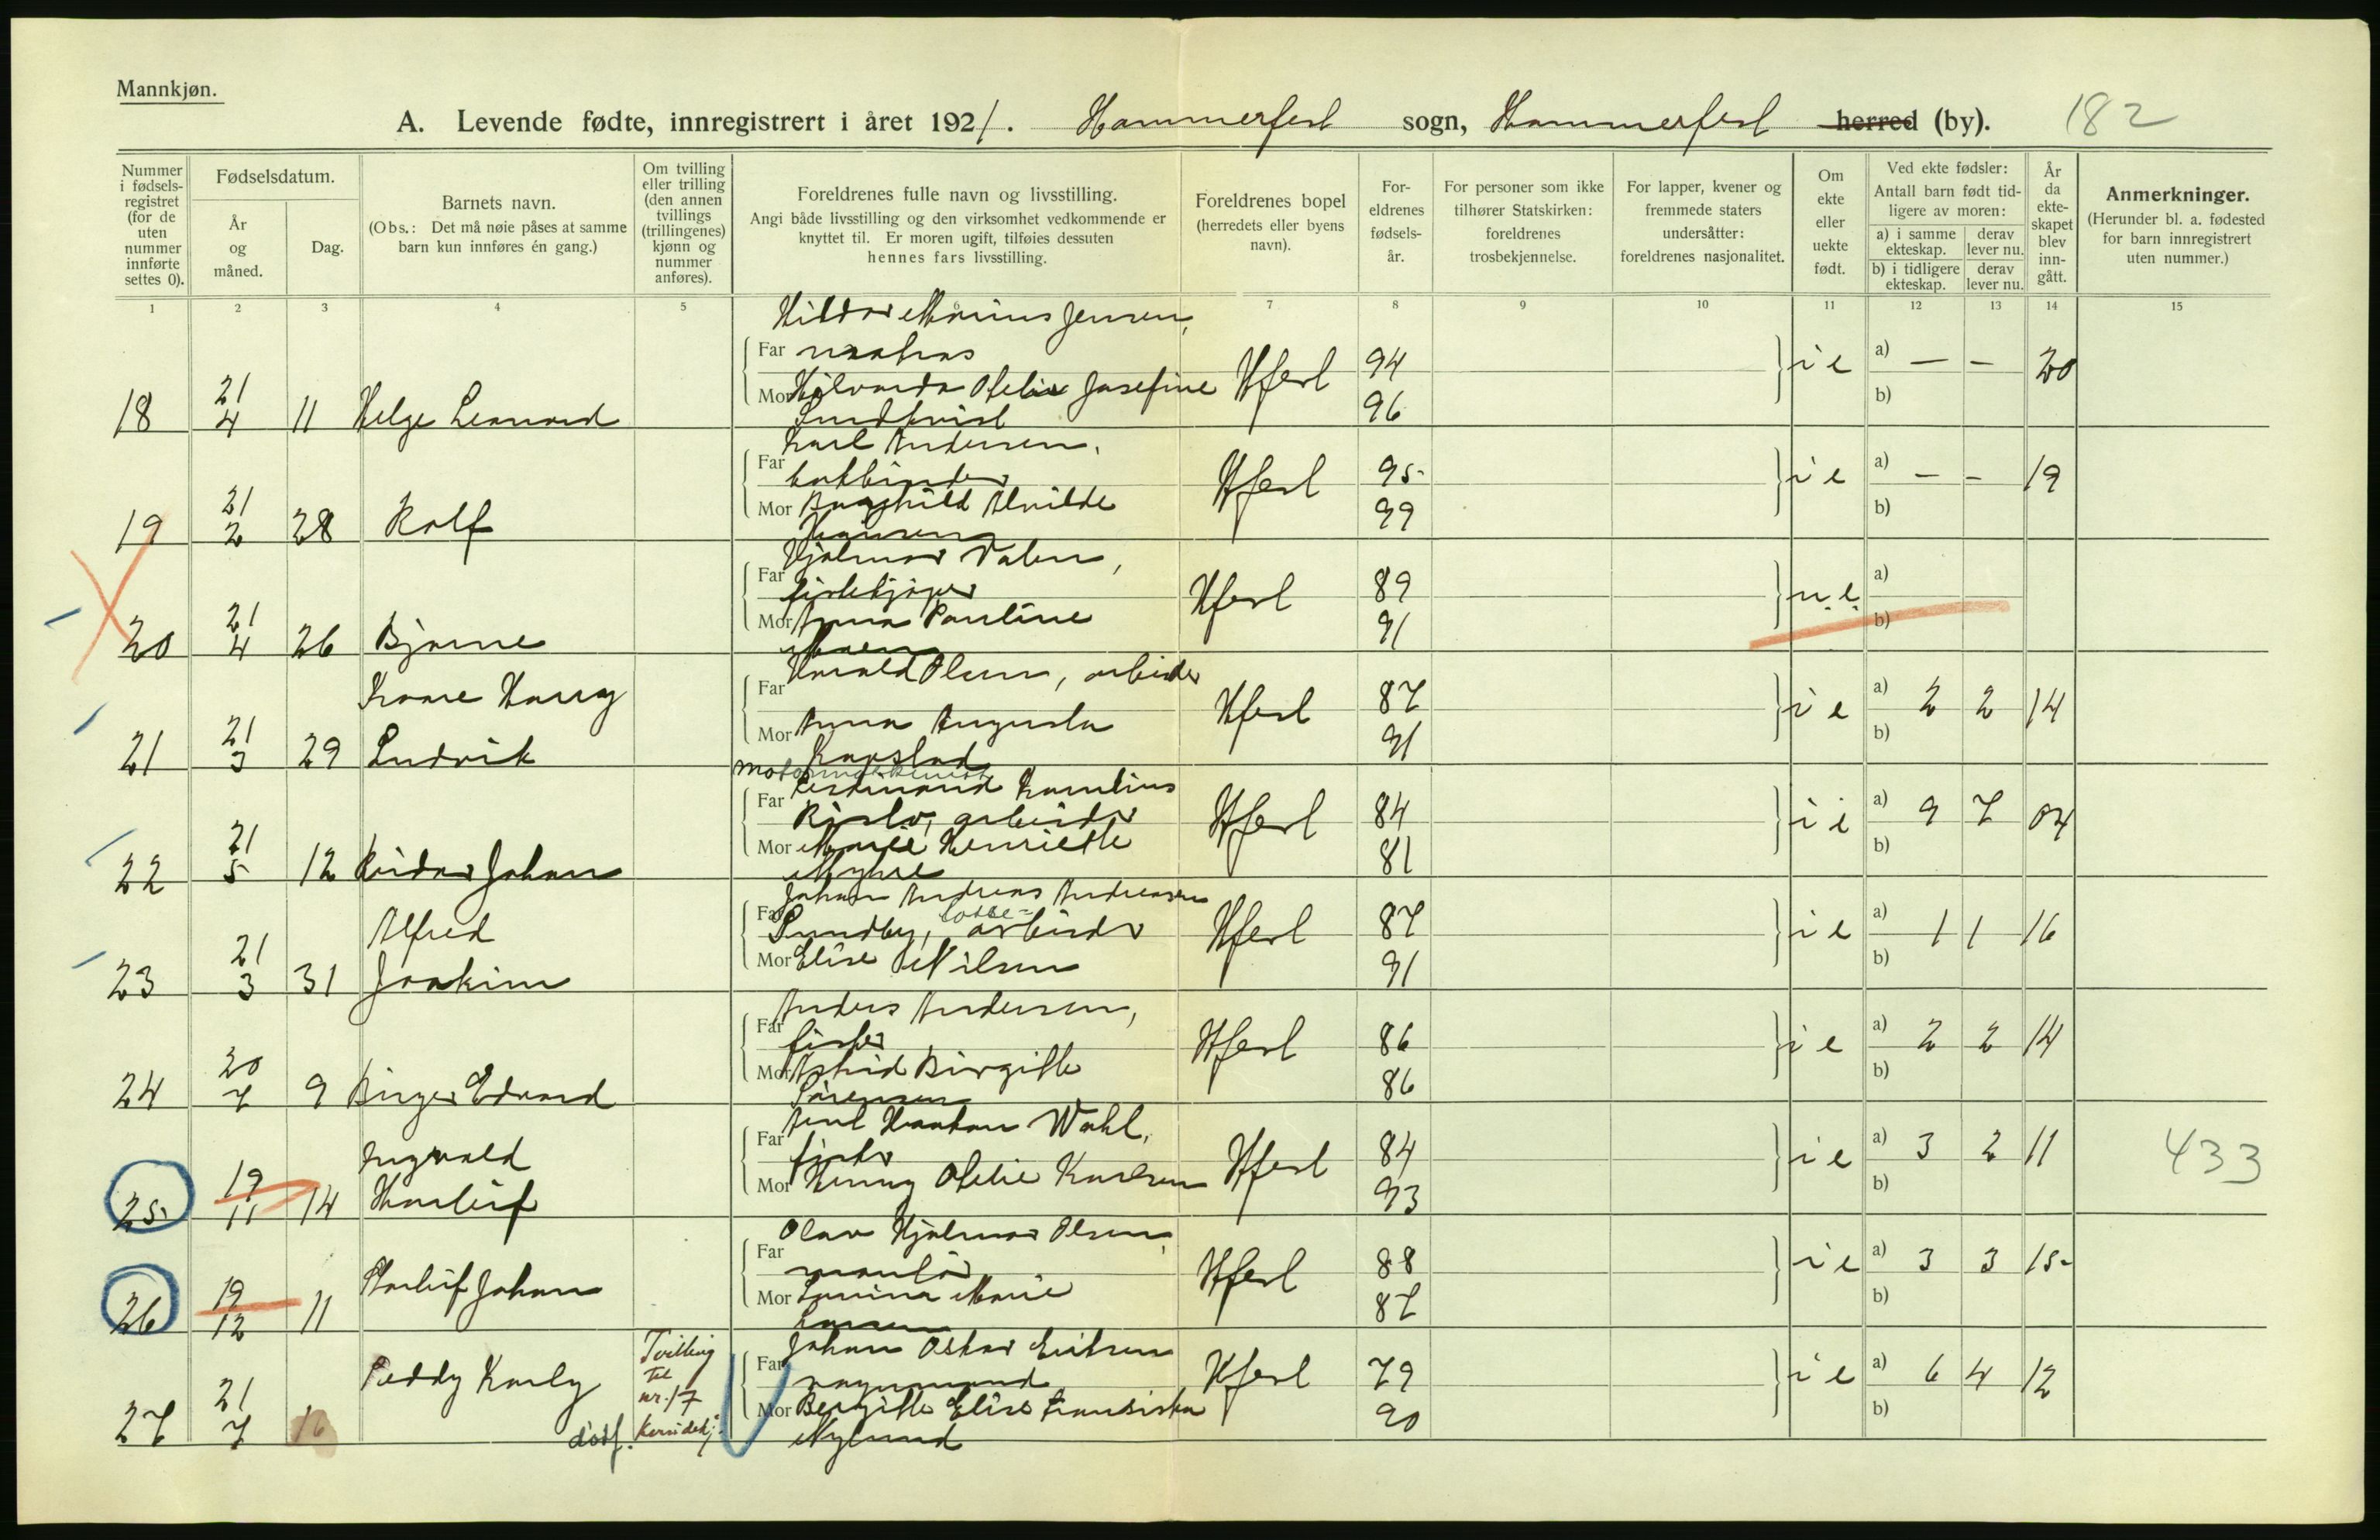 Mannkjøn.
A. Levende fødte, innregistrert i året 1921. Hammerfest sogn, Hammerfest herred (by). 182
Nummer i fødsels-registret (for de uten nummer innførte settes 0).
Fødselsdatum.
År og måned.
Dag.
Barnets navn.
(Obs.: Det må nøie påses at samme barn kun innføres én gang.)
Om tvilling eller trilling (den annen tvillings (trillingenes) kjønn og nummer anføres).
Foreldrenes fulle navn og livsstilling.
Angi både livsstilling og den virksomhet vedkommende er knyttet til. Er moren ugift, tilføies dessuten hennes fars livsstilling.
Foreldrenes bopel
(herredets eller byens navn).
For-eldrenes fødsels-år.
For personer som ikke tilhører Statskirken: foreldrenes trosbekjennelse.
For lapper, kvener og fremmede staters undersåtter: foreldrenes nasjonalitet.
Om ekte eller uekte født.
Ved ekte fødsler:
Antall barn født tid-ligere av moren:
a) i samme ekteskap.
derav lever nu.
b) i tidligere ekteskap.
derav lever nu.
År da ekte-skapet blev inn-gått.
Anmerkninger.
(Herunder bl. a. fødested for barn innregistrert uten nummer.)
1 2 3 4 5 6 7 8 9 10 11 12 13 14 15
Marius Jensen,
Far
Mor Josefine
18 21 4 11 Helge Leonard Hfest 94 96 i e a) — — 20 b)
Karl Andersen,
Far bokbinder
Mor Ragnhild Alvilde
Hansen
19 21 2 28 Rolf Hfest 95 99 i e a) — — 19 b)
Hjalmar Valen,
Far fiskekjøper
Mor Anna Pauline
20 21 4 26 Bjarne Hfest 89 91 u. e. a) b)
Far Harald Olsen, arbeider
Mor Anna Augusta
Kaare Harry
21 21 3 29 Ludvik Hfest 87 91 i e a) 2 2 14 b)
Far Ferdinand Kornelius
arbeider
Mor Marie Henriette
Myhre
22 21 5 12 Reidar Johan Hfest 84 81 i e a) 9 7 04 b)
Johan Andreas Andreassen
Far Sundby, losse=arbeider
Mor Elise Nilsen
Alfred
23 21 3 31 Joakim Hfest 87 91 i e a) 1 1 16 b)
Anders Andersen,
Far fisker
Mor Astrid Birgitte
Sørensen
24 20 7 9 Birger Edvard Hfest 86 86 i e a) 2 2 14 b)
Haakon Wahl,
Far fisker
Mor Henny Ofelie Karlsen
Ingvald
25 19 11 14 Harleif Hfest 84 93 i e a) 3 2 11 b) 433
Olav Hjalmar Olsen,
Far montør
Mor Marie
Larsen
26 19 12 11 Johan Hfest 88 87 i e a) 3 3 15 b)
Johan Oskar Eriksen
Far vognmand
Mor Bergitte Elise Fransiska
Nylund
Peddy Karly
Tvilling til nr. 17 kvindekj.
27 21 7 16 dødf. Hfest 79 90 i e a) 6 4 12 b)